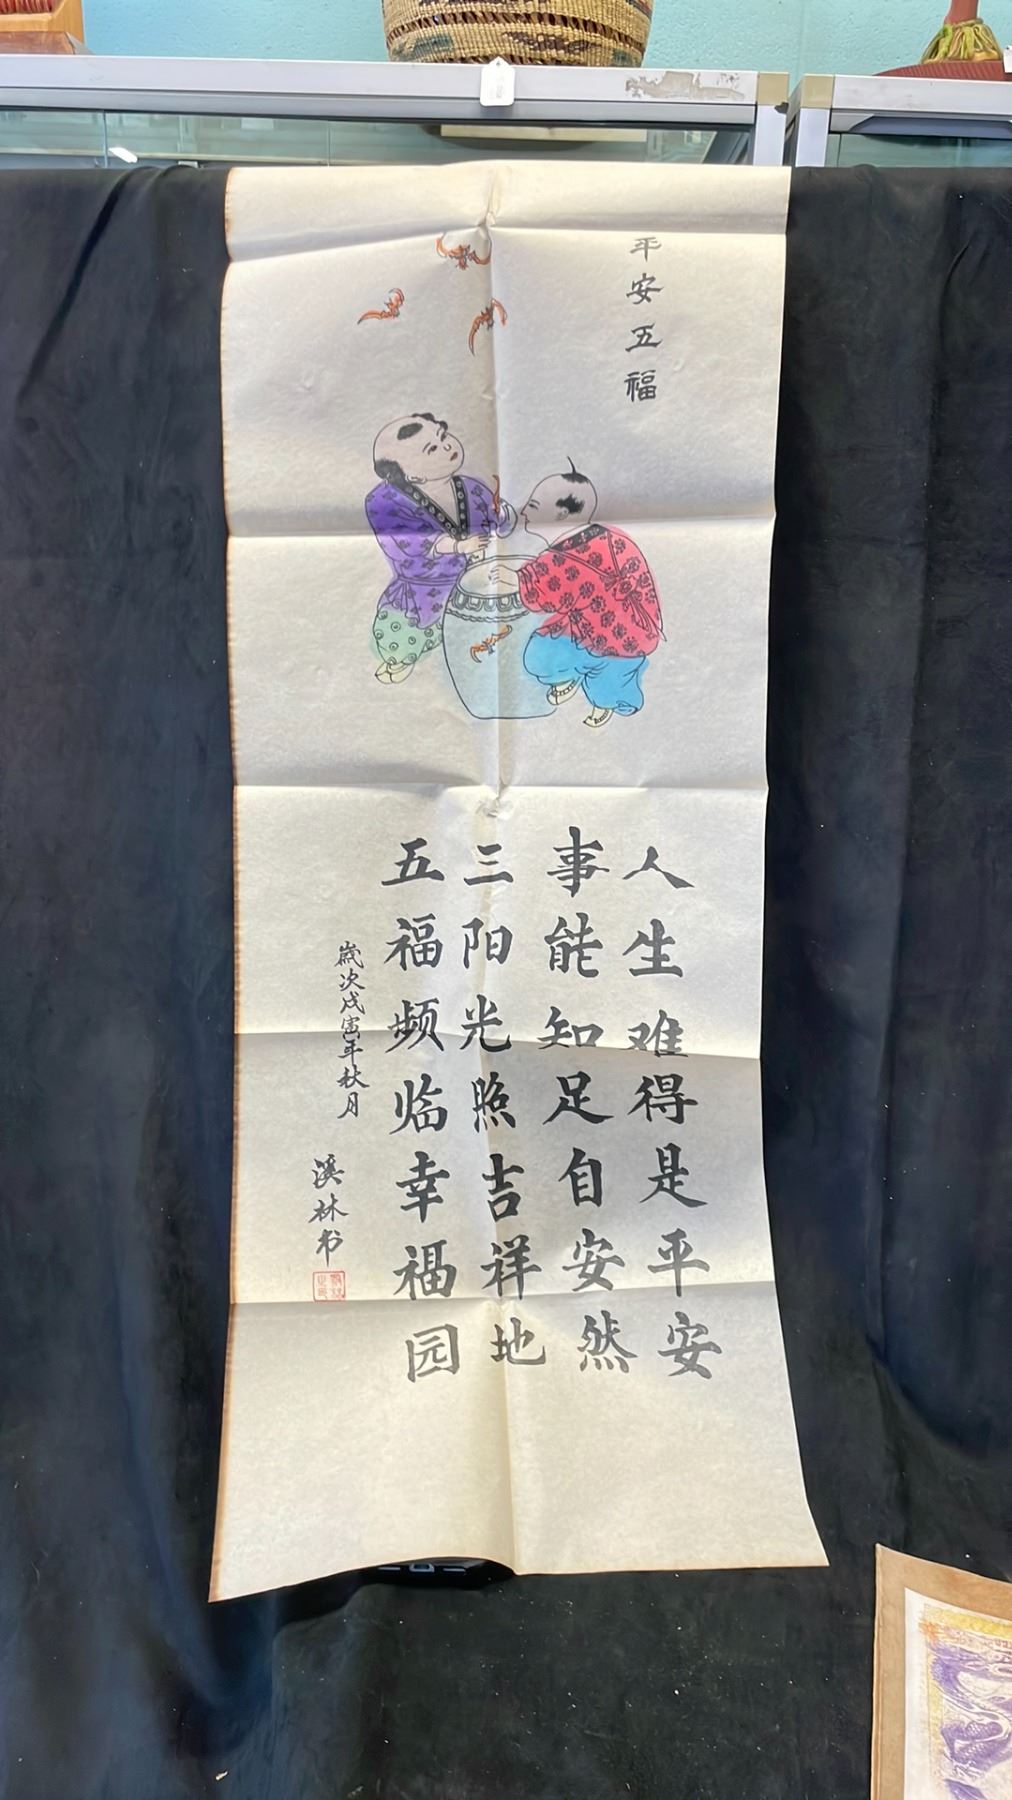 平安五福
人生难得是平安
事能知足自安然
三阳光照吉祥地
五福频临幸福园
歲次戊寅年秋月
溪林书